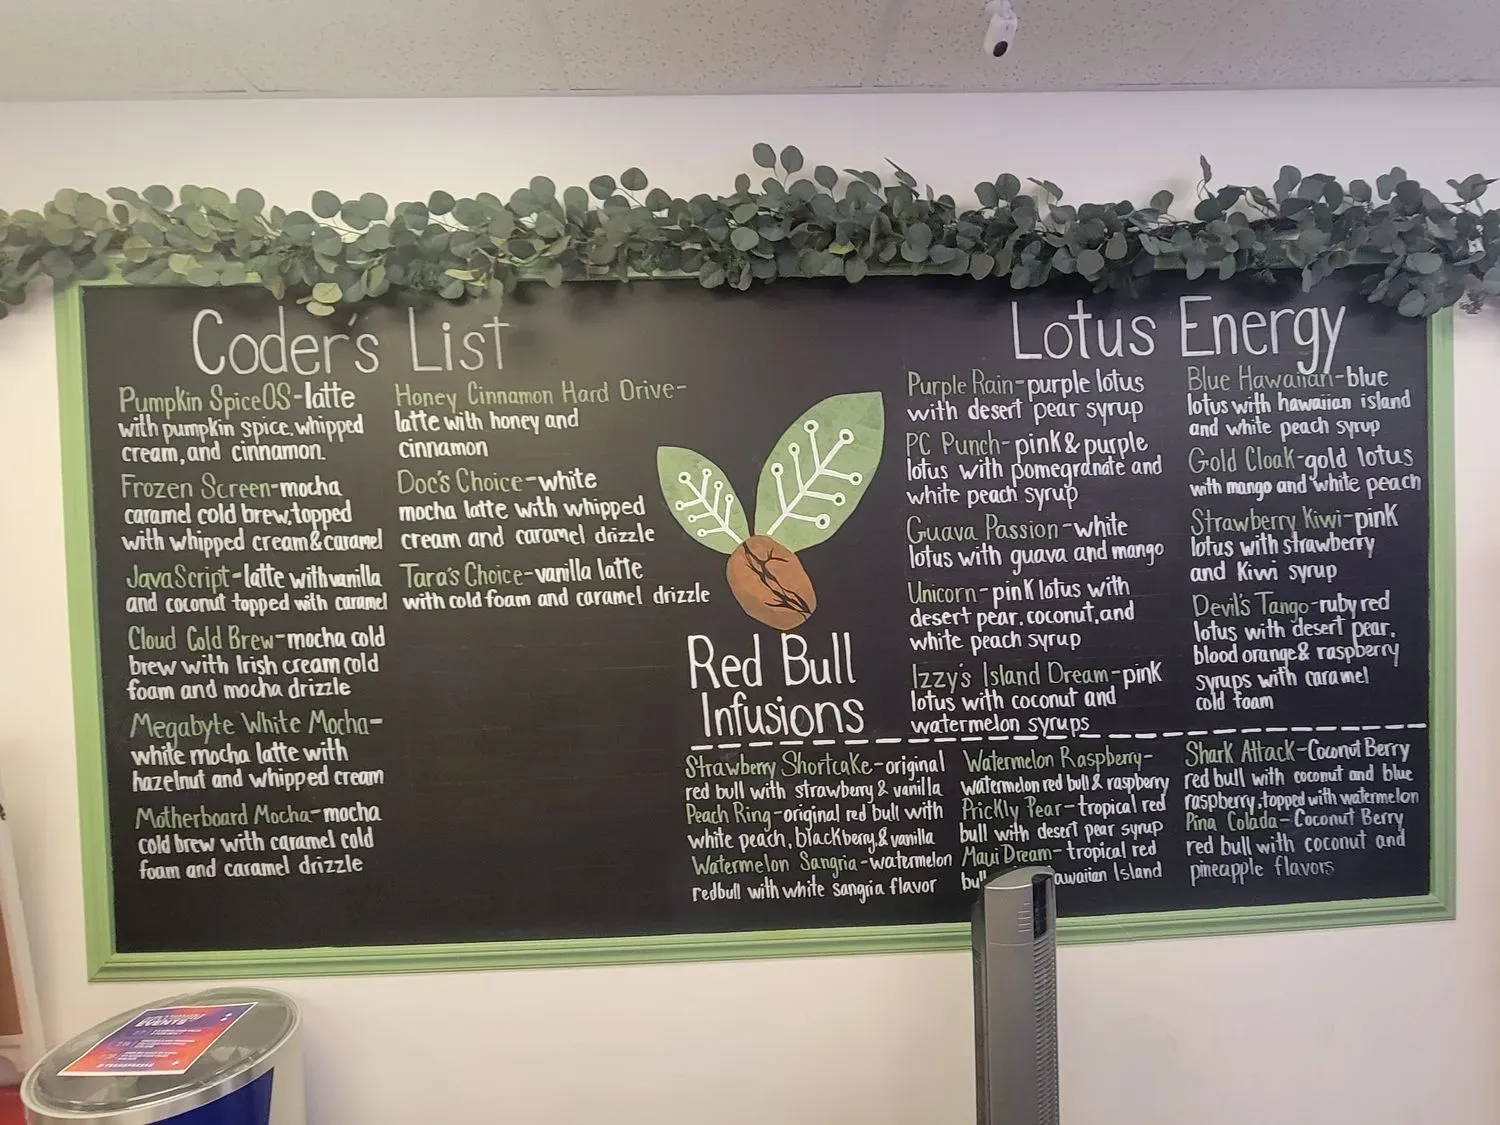 Coder's List
Pumpkin SpiceOS-latte
with pumpkin spice, whipped
cream, and cinnamon.
Frozen Screen-mocha
caramel cold brew, topped
with whipped cream & caramel
JavaScript-latte with vanilla
and coconut topped with caramel
Cloud Cold Brew-mocha cold
brew with Irish cream cold
foam and mocha drizzle
Megabyte White Mocha-
white mocha latte with
hazelnut and whipped cream
Motherboard Mocha-mocha
cold brew with caramel cold
foam and caramel drizzle
Honey Cinnamon Hard Drive-
latte with honey and
cinnamon
Doc's Choice-white
mocha latte with whipped
cream and caramel drizzle
Tara's Choice-vanilla latte
with cold foam and caramel drizzle
Lotus Energy
Purple Rain-purple lotus
with desert pear syrup
PC Punch-pink & purple
lotus with pomegranate and
white peach syrup
Guava Passion-white
lotus with guava and mango
Unicorn-pink lotus with
desert pear, coconut, and
white peach syrup
Izzy's Island Dream-pink
lotus with coconut and
watermelon syrups
Blue Hawaiian-blue
lotus with hawaiian island
and white peach syrup
Gold Cloak-gold lotus
with mango and white peach
Strawberry Kiwi-pink
lotus with strawberry
and Kiwi syrup
Devil's Tango-ruby red
lotus with desert pear,
blood orange & raspberry
syrups with caramel
cold foam
Red Bull
Infusions
Strawberry Shortcake-original
red bull with strawberry & vanilla
Peach Ring-original red bull with
white peach, blackberry, & vanilla
Watermelon Sangria-watermelon
redbull with white sangria flavor
Watermelon Raspberry-
watermelon red bull & raspberry
Prickly Pear-tropical red
bull with desert pear syrup
Maui Dream-tropical red
awaiian Island
Shark Attack-Coconut Berry
red bull with coconut and blue
raspberry, topped with watermelon
Pina Colada-Coconut Berry
red bull with coconut and
pineapple flavors
EVENTS